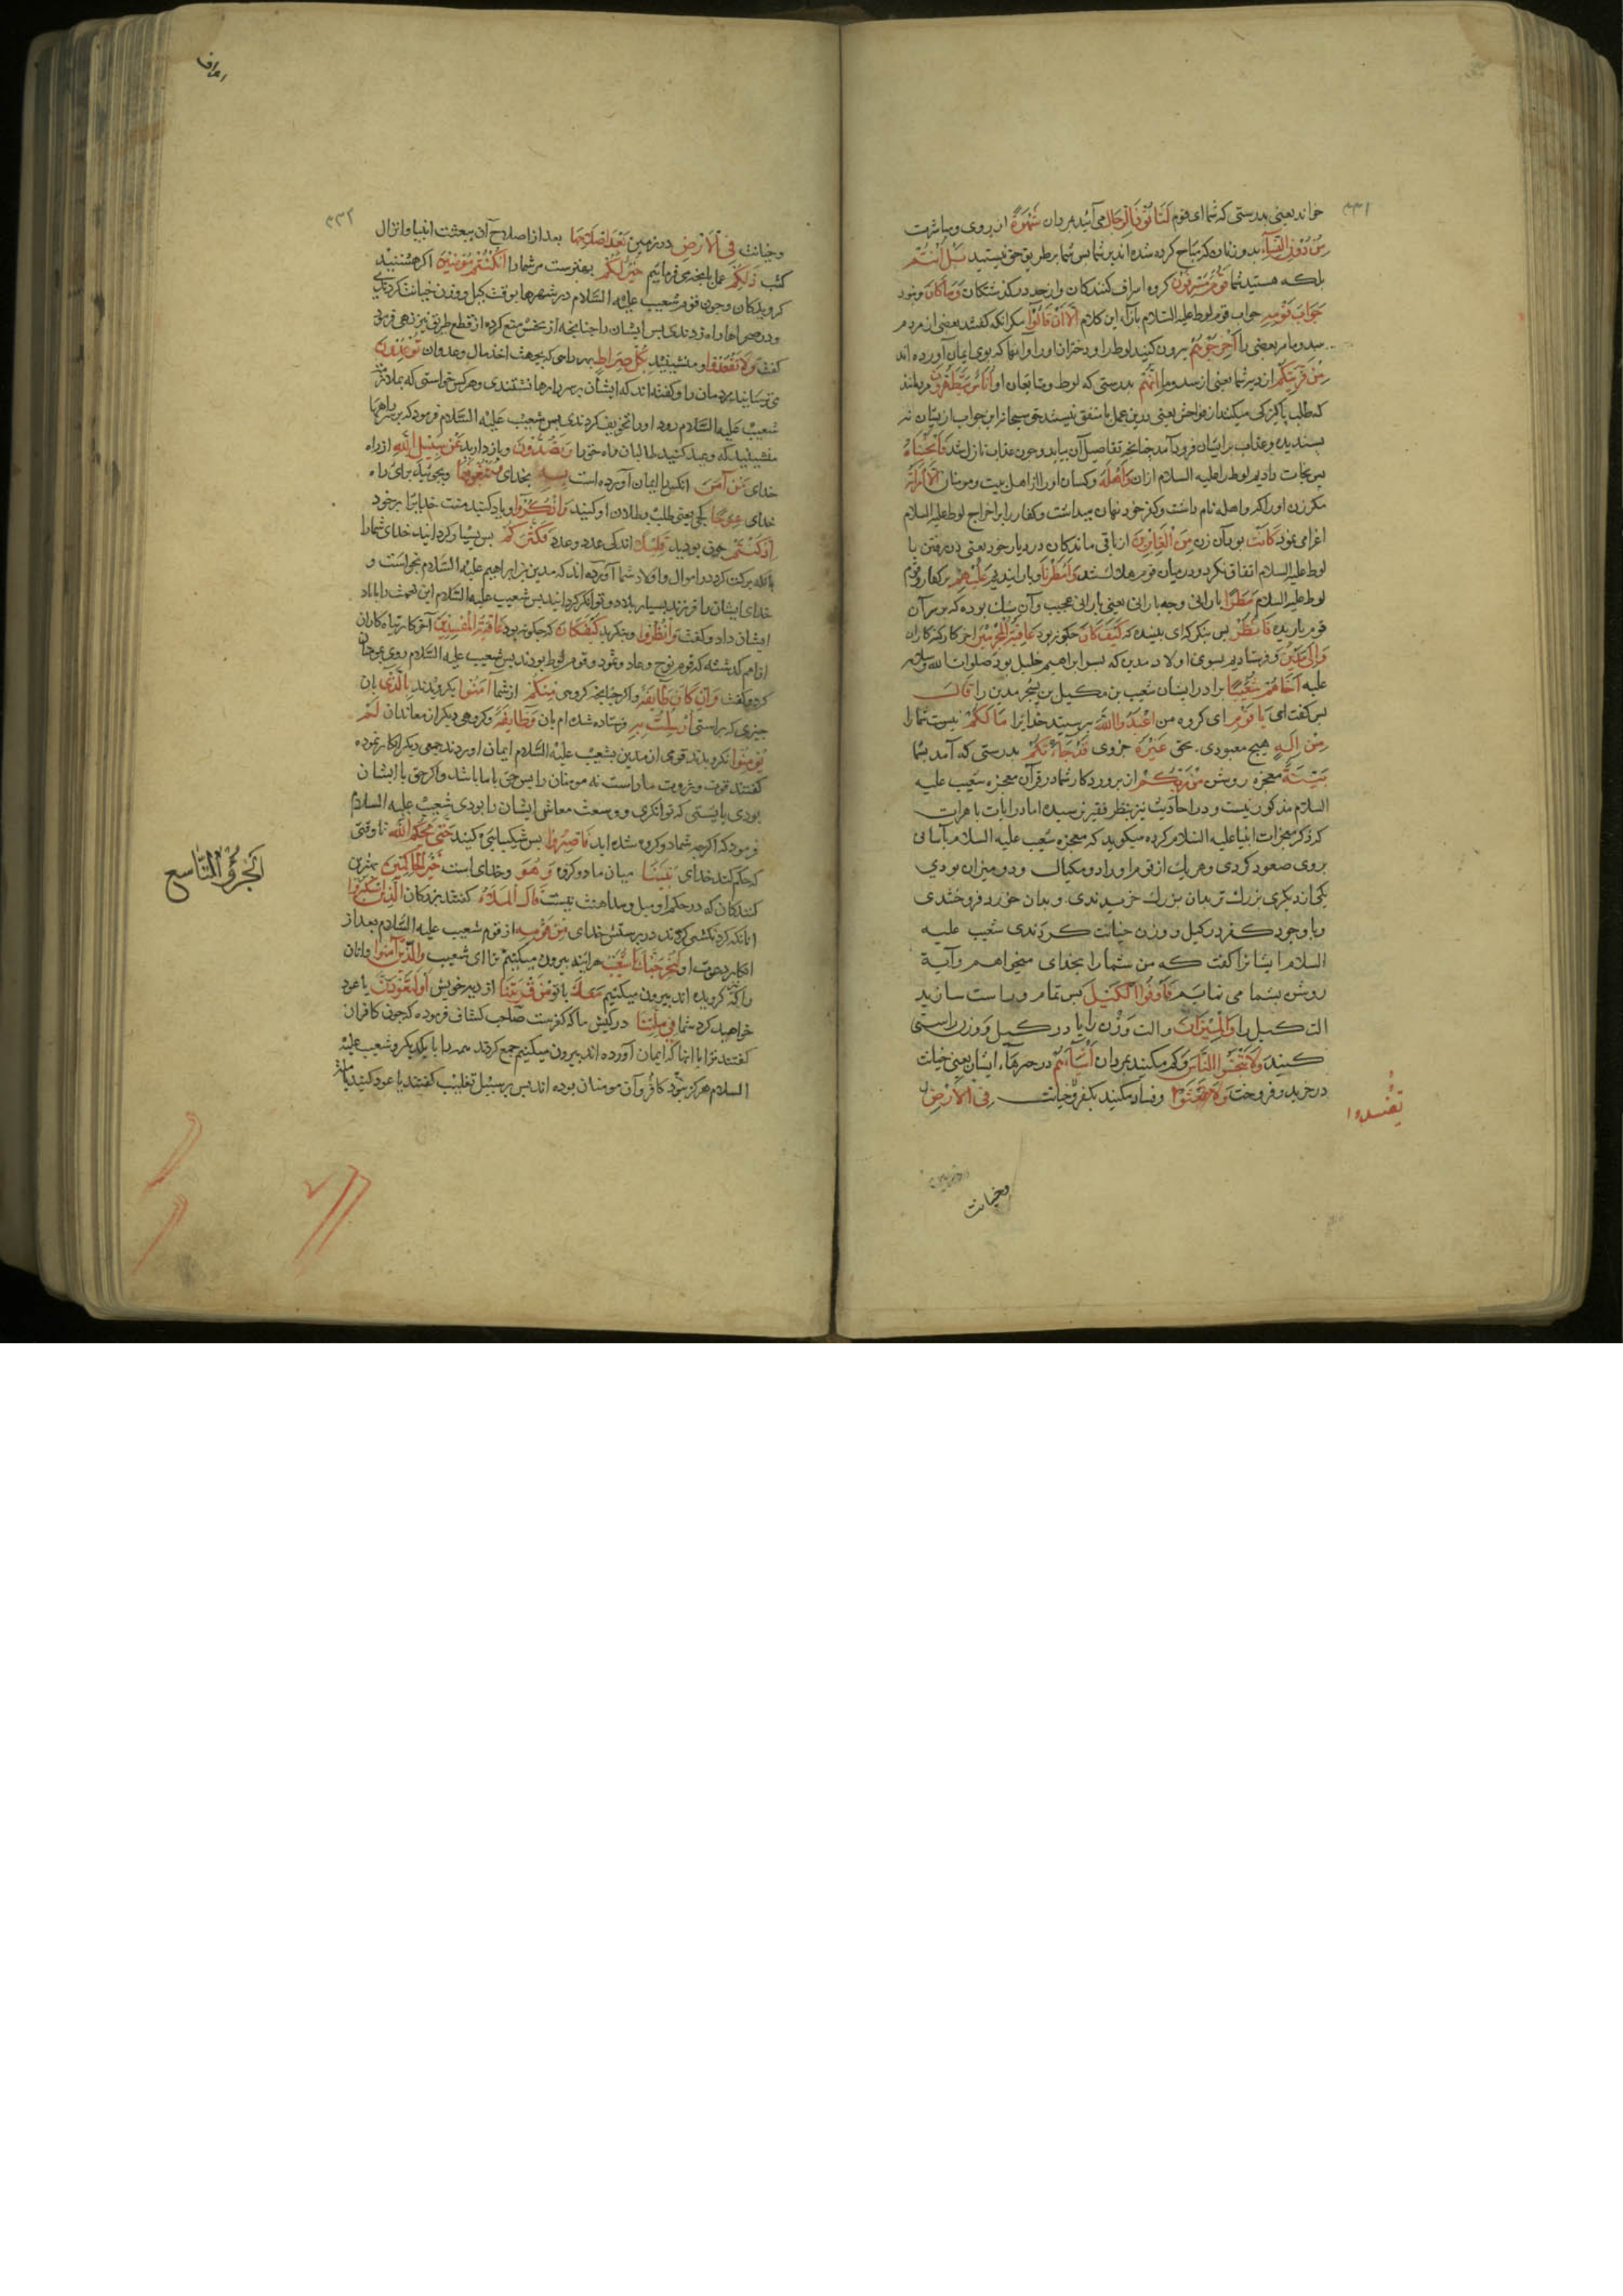 ۳۳۱
خواند یعنی بدرستی که شما ای قوم لَتَأتُونَ الرِّجَالَ می آئید بمردان شَهْوَةً از روی مباشرت
مِنْ دُونِ النِّسَآءِ بدون زنان که مباح کرده شده اند بر شما پس شما بر طریق حق نیستید بَلْ اَنْتُمْ
بلکه هستید شما قَوْمٌ مُسْرِفُونَ کروه اسراف کنندکان و از حد درکذشتکان وَمَا كَانَ و نبود
جَوَابَ قَوْمِهِ جواب قوم لوط علیه السلام این کلام اِلَّا اَنْ قَالُوا مکر انکه کفتند بعضی از مردم
مر بعضی را اَخْرِجُوهُمْ بیرون کنید لوط را و دختران او را و انها که بوی ایمان آورده اند
مِنْ قَرْيَتِكُمْ از دیر شما یعنی از سدوم اِنَّهُمْ بدرستی که لوط و متابعان او اُنَاسٌ يَتَطَهَّرُونَ مردمانند
که طلب پاکیزکی میکنند از فواحش یعنی درین عمل با متفق نیستند حق سبحانه این جواب از یشان نه
پسندیده و عذاب بر ایشان فرود آمد چنانچه تفاصیل آن بیاید و چون عذاب نازل شد فَاَنْجَيْنَاهُ
پس نجات دادیم لوط را علیه السلام از ان وَاَهْلَهُ و کسان او را از اهل بیت و مومنان اِلَّا امْرَاَتَهُ
مکر زن او را که واهله نام داشت و کفر خود نهان میداشت و کفار را بر اخراج لوط علیه السلام
اغرا می نمود كَانَتْ بود آن زن مِنَ الْغَابِرِينَ از باقی ماندکان در دیار خود یعنی در رفتن با
لوط علیه السلام اتفاق نکرد و در میان قوم هلاک شد وَاَمْطَرْنَا و بارانیدیم عَلَيْهِمْ بر کفار قوم
لوط علیه السلام مَطَرًا بارانی وجه بارانی یعنی بارانی عجیب و آن سنک بوده که بر سر آن
قوم باریده فَانْظُرْ پس بنکر که ای بیننده که كَيْفَ كَانَ چکونه بود عَاقِبَةُ الْمُجْرِمِينَ اخر کار کنه کاران
وَاِلَى مَدْيَنَ و فرستادیم بسوی اولاد مدین که پسر ابراهیم خلیل بود صلوات الله و سلامه
علیه اَخَاهُمْ شُعَيْبًا برادر ایشان شعیب بن مکیل بن یشجر مدین را قَالَ
پس کفت ای يَا قَوْمِ ای کروه من اعْبُدُوا اللهَ بپرستید خدایرا مَا لَكُمْ نیست شما را
مِنْ اِلَهٍ هیچ معبودی بحق غَيْرُهُ جز وی قَدْ جَاءَتْكُمْ بدرستی که آمد بشما
بَيِّنَةٌ معجزه روشن مِنْ رَبِّكُمْ از پروردکار شما در قرآن معجزه شعیب علیه
السلام مذکور نیست و در احادیث نیز بنظر فقیر نرسیده اما در ایات باهرات
که ذکر معجزات انبیا علیه السلام کرده میکوید که معجزه شعیب علیه السلام آسانی
بروی صعود کردی و هر یک از قوم او را دو مکیال و دو میزان بودی
یکی از دیکری بزرک تر بدان بزرک خریدندی و بدان خورد فروختندی
و با وجود کفر در کیل و وزن خیانت کردندی شعیب علیه
السلام ایشانرا کفت که من شما را بخدای میخواهم و آیة
روشن بشما می نمایم فَاَوْفُوا الْكَيْلَ پس تمام و راست سازید
الت کیل را وَالْمِيزَانَ و الت وزن را یا در کیل و وزن راستی
کنید وَلَا تَبْخَسُوا النَّاسَ و کم مکنید بمردان اَشْيَاءَهُمْ در چیزهاء ایشان یعنی خیانت
در خرید و فروخت وَلَا و فساد مکنید بکفر و خیانت فِى الْاَرْضِ
تُفْسِدُوا
وخیانت
اعراف
۳۳۲
وخیانت فِى الْاَرْضِ در زمین بَعْدَ اِصْلَاحِهَا بعد از اصلاح آن ببعثت انبیا و انزال
کتب ذَلِكُمْ عمل بانچه می فرمائیم خَيْرٌ لَكُمْ بهترست مر شما را اِنْ كُنْتُمْ مُؤْمِنِينَ اکر هستید
کرویدکان و چون قوم شعیب علیه السلام در شهرها بوقت کیل و وزن خیانت کردندی
و در صحراها راه زدندی پس ایشان را چنانچه از بخس منع کرده از قطع طریق نیز نهی فرمود
کفت وَلَا تَقْعُدُوا و منشینید بِكُلِّ صِرَاطٍ بهر راهی که بجهت اخذ مال و عدوان تُوعِدُونَ
می ترسانید مردمان را و کفته اند که ایشان بر سر راهها نشستندی و هر کس خواستی که بملازمت
شعیب علیه السلام رود او را تخویف کردندی پس شعیب علیه السلام فرمود که بر سر راهها
منشینید که وعید کنید طالبان راه حق را وَتَصُدُّونَ و باز دارید عَنْ سَبِيلِ اللهِ از راه
خدای مَنْ آمَنَ انکس را ایمان آورده است بِهِ بخدای وَتَبْغُونَهَا و بجوئید برای راه
خدای عِوَجًا کجی یعنی طلب بطلان او کنید وَاذْكُرُوا و یاد کنید منت خدایرا بر خود
اِذْ كُنْتُمْ چون بودید قَلِيلًا اندکی عدد و عدد فَكَثَّرَكُمْ پس بسیار کردانید خدای شما را
برکت کرد در اموال و اولاد شما آورده اند که مدین بن ابراهیم علیه السلام بخواست و
خدای ایشان را فرزند بسیار بداد و توانکر کردانید پس شعیب علیه السلام این نعمت را بیاد
ایشان داد و کفت وَانْظُرُوا و بنکرید كَيْفَ كَانَ که چکونه بود عَاقِبَةُ الْمُفْسِدِينَ آخر کار تباه کاران
از امم کذشته که قوم نوح و عاد و ثمود و قوم لوط بودند پس شعیب علیه السلام روی بمومنان
کرد و کفت وَاِنْ كَانَ طَائِفَةٌ و اکر چنانچه کروهی مِنْكُمْ از شما آمَنُوا بکرویدند بِالَّذِى بان
چیزی که براستی اُرْسِلْتُ بِهِ فرستاده شده ام بان وَطَائِفَةٌ و کروهی دیکر از معاندان لَمْ
يُؤْمِنُوا نکرویدند قومی از مدین بشعیب علیه السلام ایمان اوردند جمعی دیکر انکار نموده
کفتند قوت و ثروت ما راست نه مومنان را پس حق با ما باشد و اکر حق با ایشان
بودی بایستی که توانکری و وسعت معاش ایشان را بودی شعیب علیه السلام
فرمود که اکرچه شما دو کروه شده اید فَاصْبِرُوا پس شکیبایی کنید حَتَّى يَحْكُمَ اللهُ تا وقتی
که حکم کند خدای بَيْنَنَا میان ما دو کروه وَهُوَ و خدای است خَيْرُ الْحَاكِمِينَ بهترین
کنندکان که در حکم او میل و مداهنت نیست قَالَ الْمَلَاُ کفتند بزرکان الَّذِينَ اسْتَكْبَرُوا
انانکه کردنکشی کردند در پرستش خدای مِنْ قَوْمِهِ از قوم شعیب علیه السلام بعد از
انکار دعوت او لَنُخْرِجَنَّكَ يَا شُعَيْبُ هرآینه بیرون میکنیم ترا ای شعیب وَالَّذِينَ آمَنُوا و انان
را که کرویده اند بیرون میکنیم مَعَكَ با تو مِنْ قَرْيَتِنَا از دیه خویش اَوْ لَتَعُودُنَّ یا عود
خواهید کرد شما فِى مِلَّتِنَا در کیش ما که کفرست صاحب کشاف فرموده که چون کافران
کفتند ترا با انها که ایمان آورده اند بیرون میکنیم جمع کردند همه را با یکدیکر و شعیب علیه
السلام هرکز نبود کافر و آن مومنان بوده اند پس بر سبیل تغلیب کفتند یا عود کنید
اَلْجُزْؤُ التَّاسِع